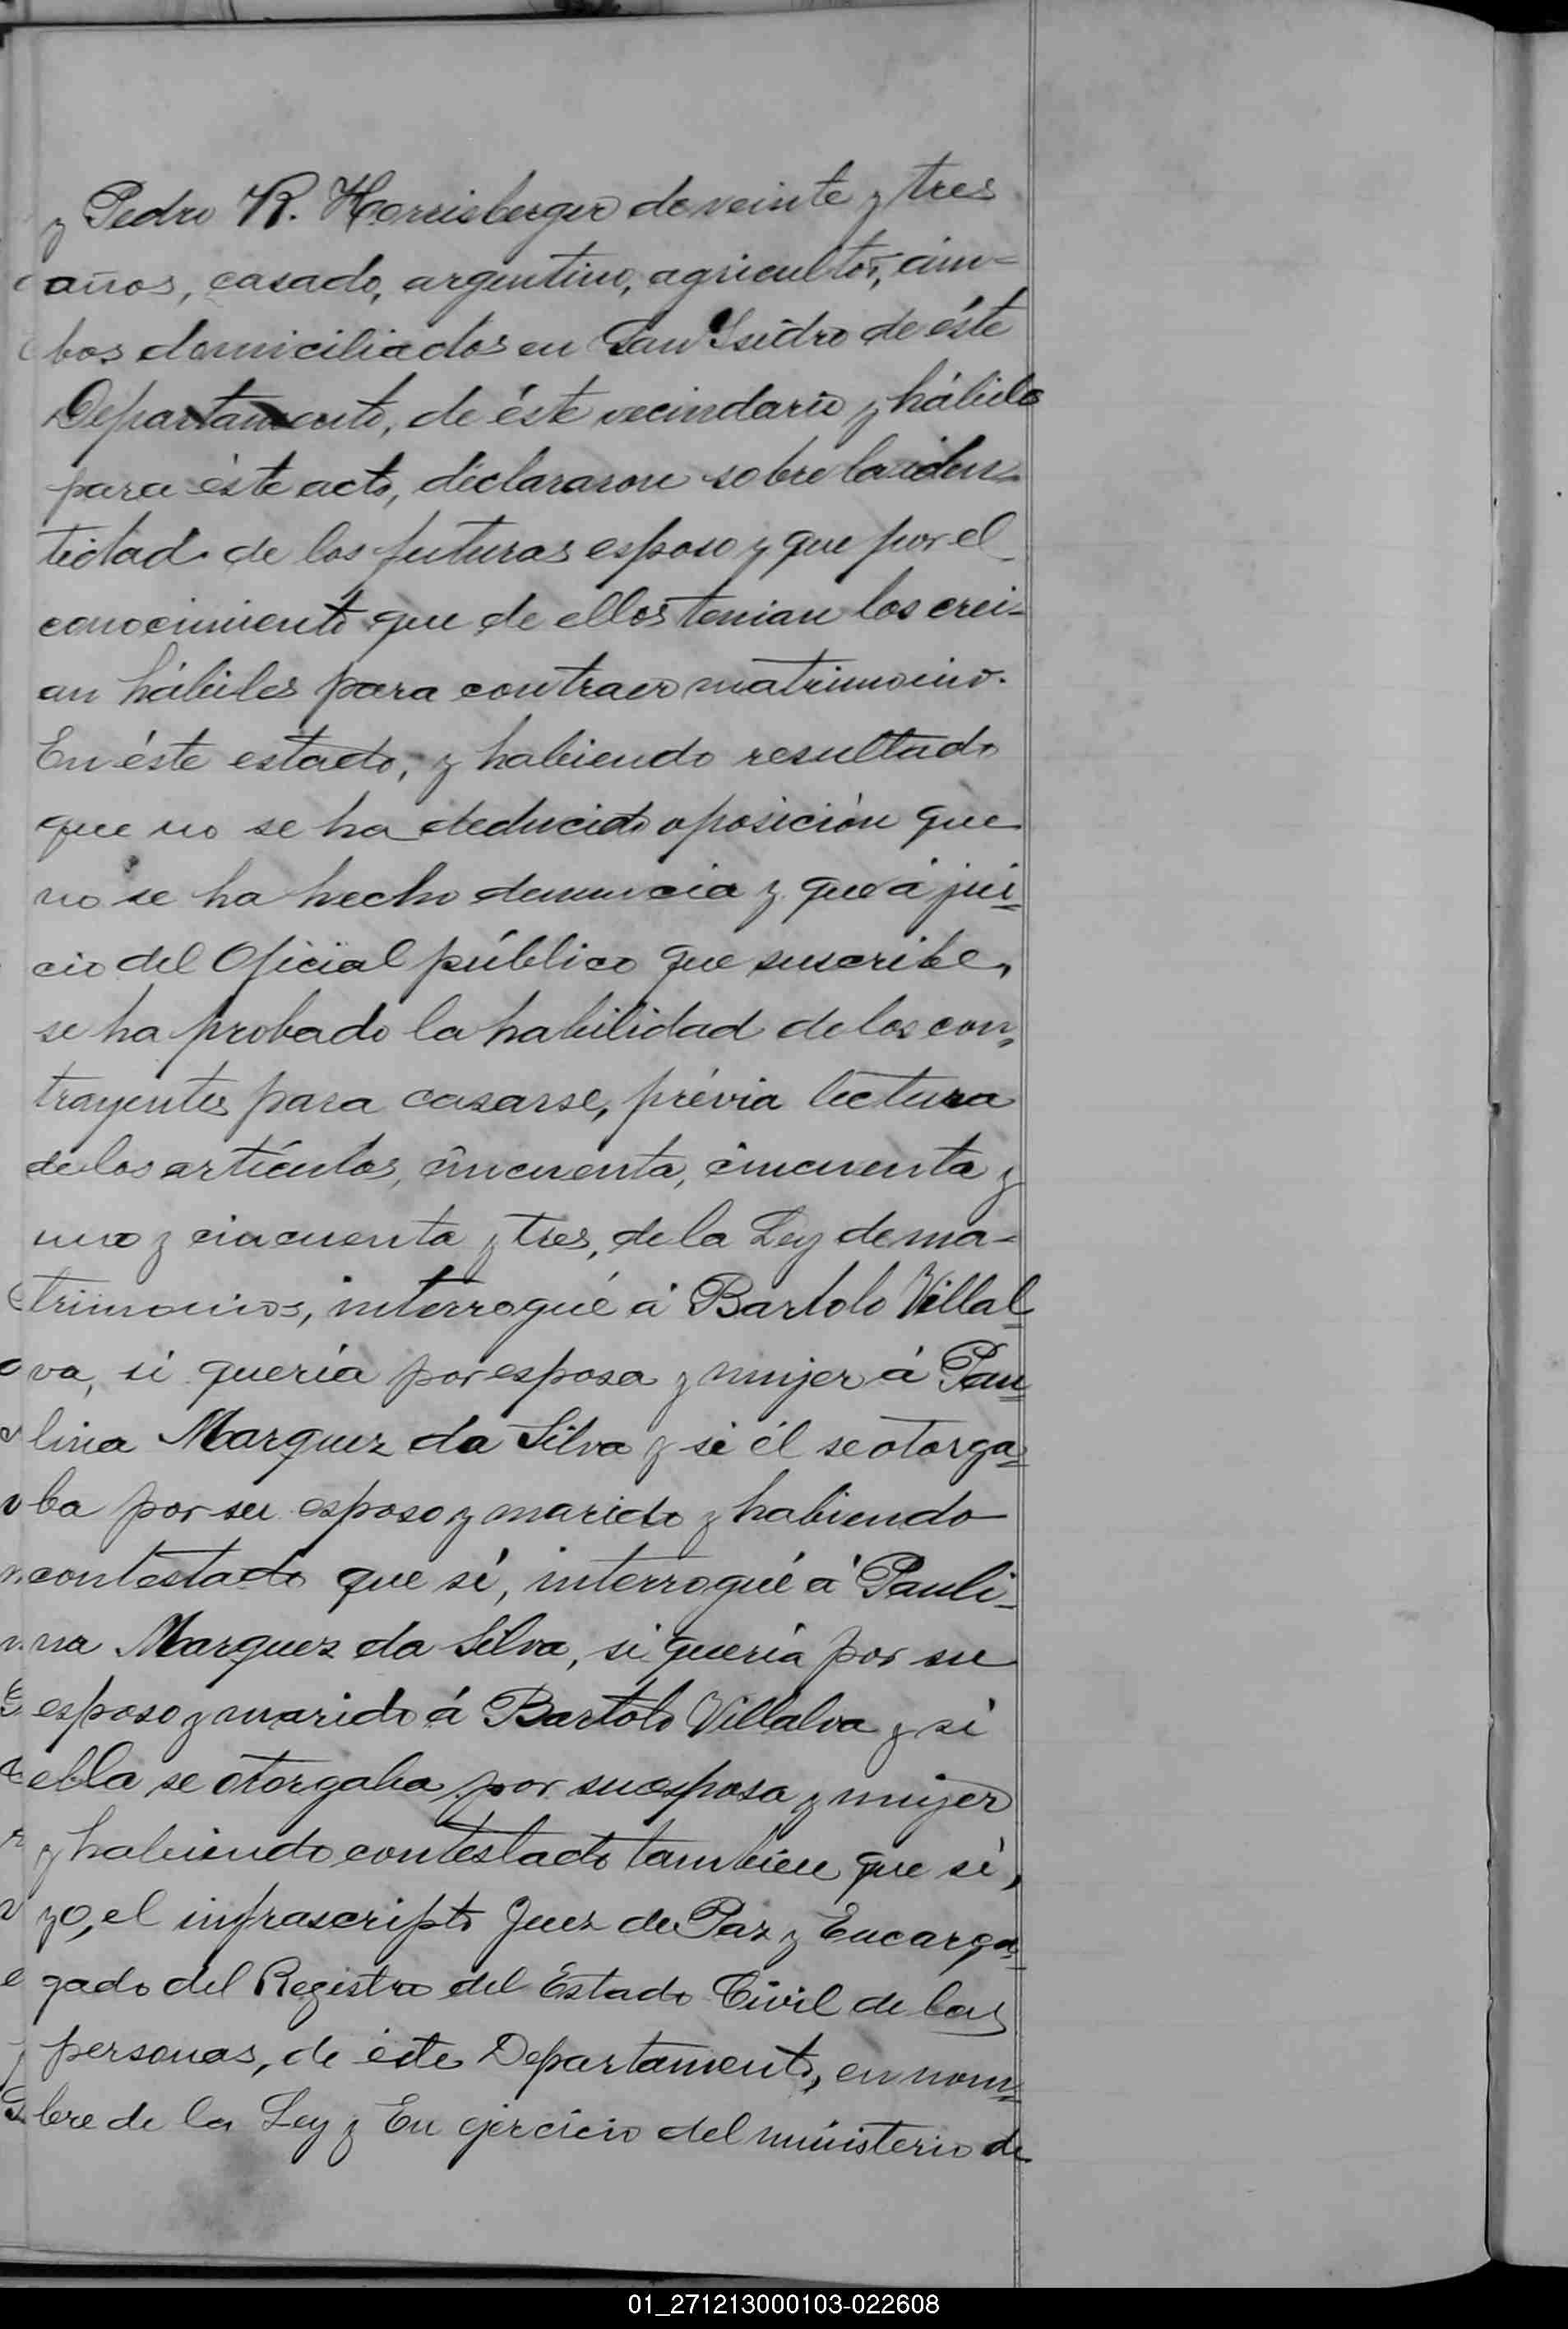 y Pedro R. Horrisberger de veinte y tres
años, casado, argentino, agricultor, am-
bos domiciliados en San Isidro de éste
Departamento, de éste vecindario y hábiles
para éste acto, declararon sobre la iden-
tidad de los futuros esposo y que por el
conocimiento que de ellos tenian los crei-
an hábiles para contraer matrimonio.
En éste estado, y habiendo resultado
que no se ha deducido oposición que
no se ha hecho denuncia y que á jui-
cio del Oficial público que suscribe,
se ha probado la habilidad de los con-
trayentes para casarse, prévia lectura
de los artículos, cincuenta, cincuenta y
uno y cincuenta y tres, de la Ley de ma-
trimonios, interrogué á Bartolo Villal-
va, si quería por esposa y mujer á Pau-
lina Marquez da Silva y si él se otorga-
ba por su esposo y marido y habiendo
contestado que sí, interrogué á Pauli-
na Marquez da Silva, si quería por su
esposo y marido á Bartolo Villalva y si
ella se otorgaba por su esposa y mujer
y habiendo contestado tambien que sí,
yo, el infrascripto Juez de Paz y Encarga-
gado del Registro del Estado Civil de las
personas, de éste Departamento, en nom-
bre de la Ley y En ejercicio del ministerio de
01_271213000103-022608